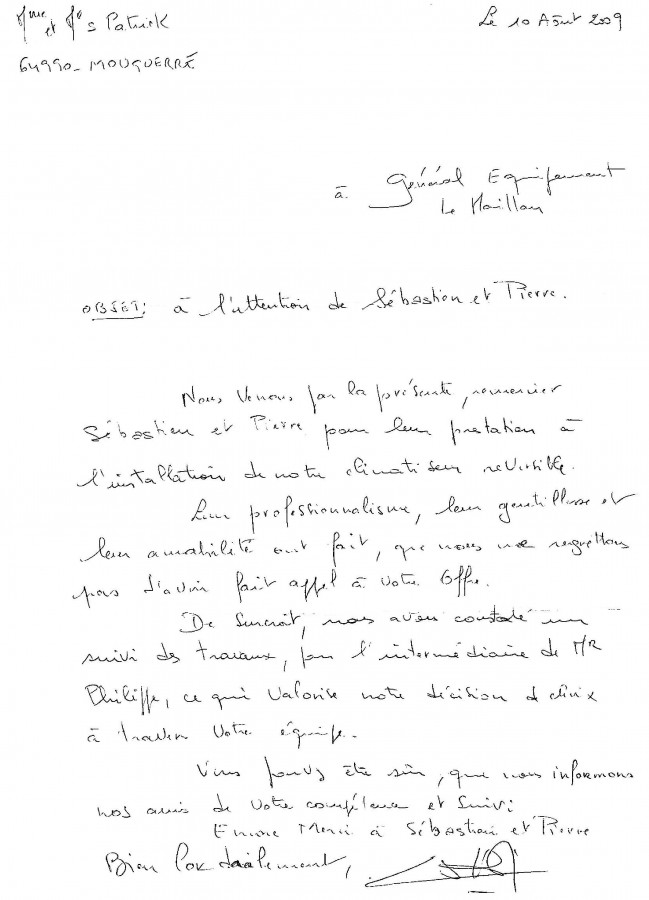 Mme et Mr S Patrick
Le 10 Août 2009
64990_ MOUGUERRE
à Général Equipement
Le Haillan
OBJET: à l'attention de Sébastien et Pierre.
Nous venons par la présente, remercier
Sébastien et Pierre pour leur prestation à
l'installation de notre climatiseur reversible.
Leur professionnalisme, leur gentillesse et
leur amabilité ont fait, que nous ne regrettons
pas d'avoir fait appel à votre offre.
De surcroît, nous avons constaté un
suivi des travaux, par l'intermédiaire de MR
Philippe, ce qui valorise notre décision de choix
à travers votre équipe.
Vous pouvez être sûr, que nous informons
nos amis de votre compétence et suivi.
Encore Merci à Sébastien et Pierre
Bien Cordialement,